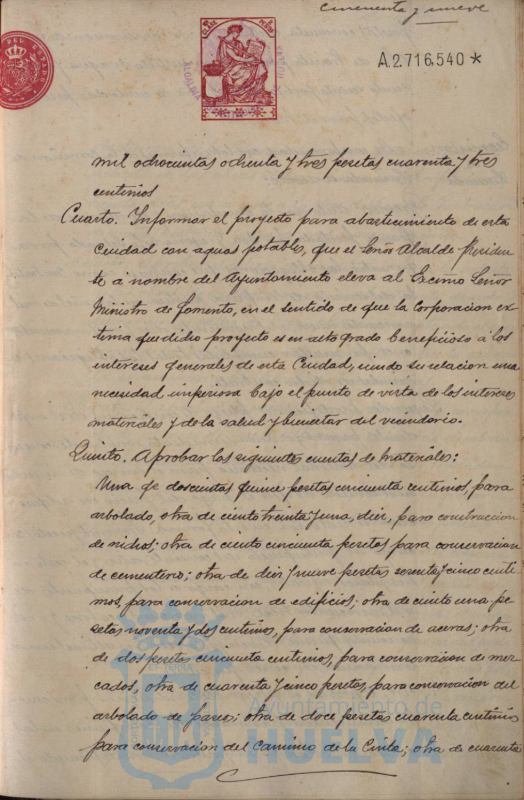 cincuenta y nueve
A.2.716,540 *
mil ochocientas ochenta y tres pesetas cuarenta y tres
centimos
Cuarto. Informar el proyecto para abastecimiento de esta
Ciudad con aguas potables, que el Señor Alcalde Presiden
te á nombre del Ayuntamiento eleva al Excmo Señor
Ministro de Fomento, en el sentido de que la Corporacion ex
tima que dicho proyecto es en alto grado beneficioso á los
intereses generales de esta Ciudad, siendo su relacion una
necesidad imperiosa bajo el punto de vista de los intereses
materiales y de la salud y bienestar del vecindario.
Quinto. Aprobar las siguientes cuentas de materiales:
Una de doscientas quince pesetas cincuenta centimos, para
arbolado, otra de ciento treinta y una, diez, para construccion
de nichos; otra de ciento cincuenta pesetas para conservacion
de cementerio; otra de diez y nueve pesetas sesenta y cinco centi
mos, para conservacion de edificios; otra de ciento una pe
setas noventa y dos centimos, para conservacion de aceras; otra
de dos pesetas cincuenta centimos, para conservacion de mer
cados, otra de cuarenta y cinco pesetas, para conservacion del
arbolado de paseo; otra de doce pesetas cuarenta centimos
para conservacion del Camino de la Cinta; otra de cuarenta
Ayuntamiento de
HUELVA